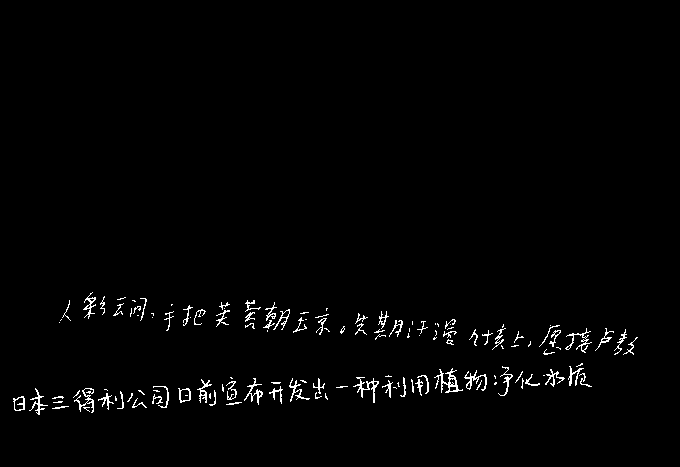 人彩云间,手把芙蓉朝玉京。先期汗漫九垓上,愿接卢敖
日本三得利公司日前宣布开发出一种利用植物净化水质